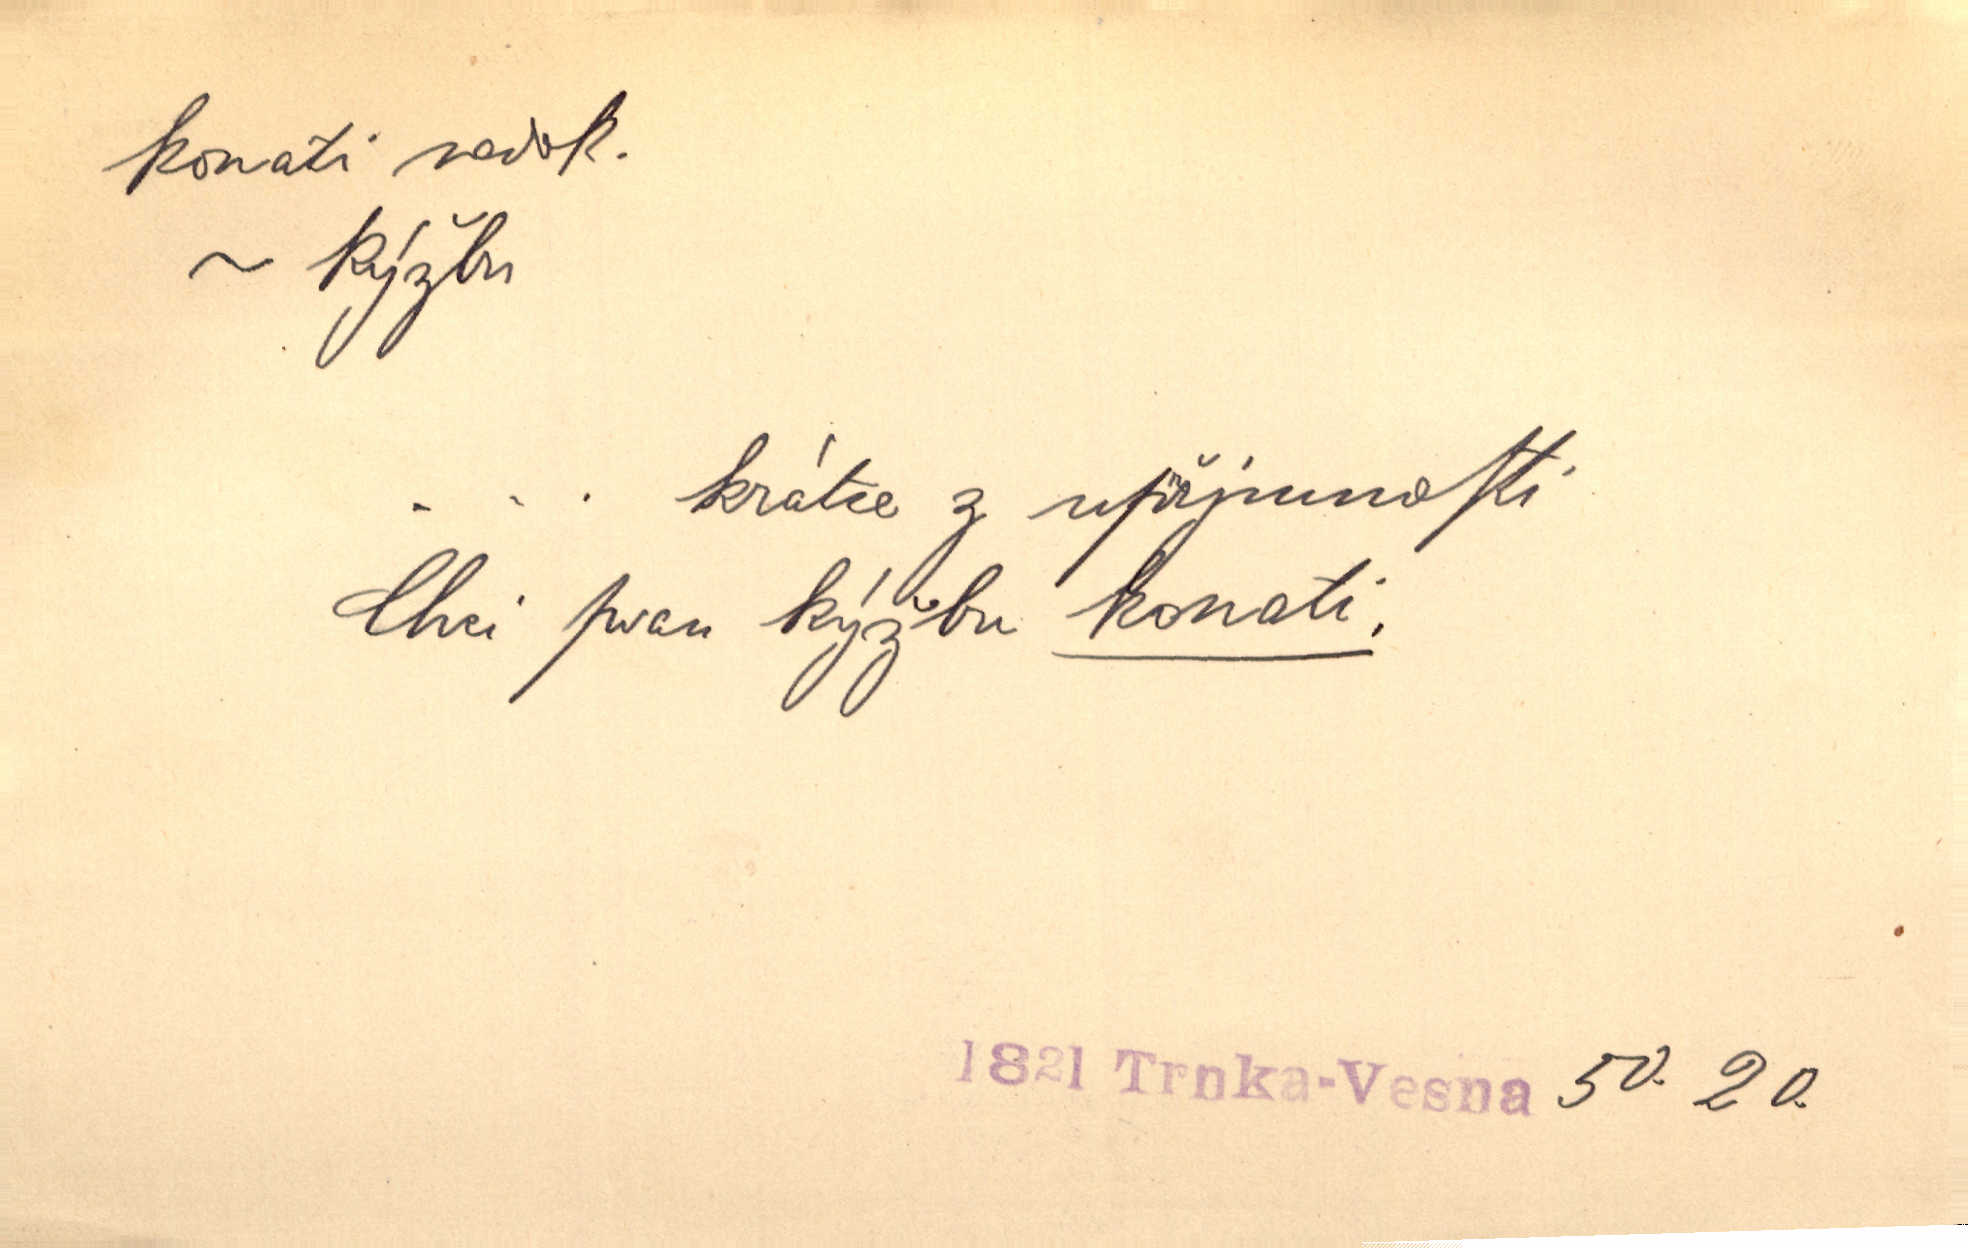 konati nedok.
~ kýžbu
. . . krátce z upřjmnosti
Chci pran kýžbu konati.
1821 Trnka-Vesna 50. 20.